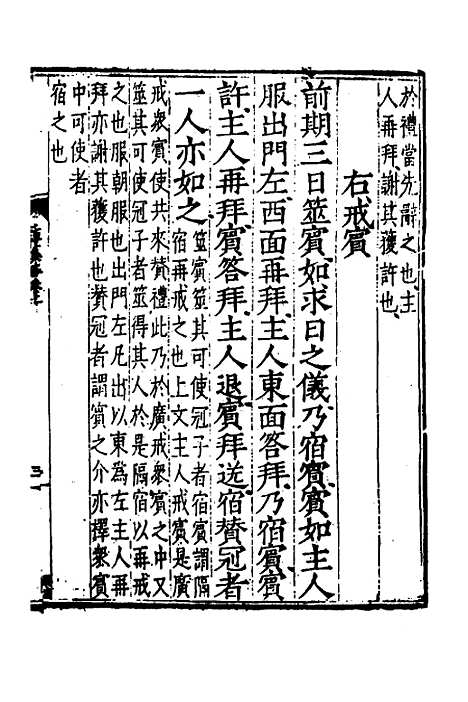 於禮當先辭之也主
人再拜謝其獲許也
右戒賓
前期三日筮賓如求日之儀乃宿賓賓如主人
服出門左西面再拜主人東面答拜乃宿賓賓
許主人再拜賓答拜主人退賓拜送宿賛冠者
一人亦如之筮賓筮其可使冠子者宿賓謂隔
宿再戒之也上文主人戒賓是廣
戒衆賓使共來賛禮此乃於廣戒衆賓之中又
筮其可使冠子者筮得其人於是隔宿以再戒
之也服朝服也出門左凡出以東為左主人再
拜亦謝其獲許也賛冠者謂賓之介亦擇衆賓
中可使者
宿之也